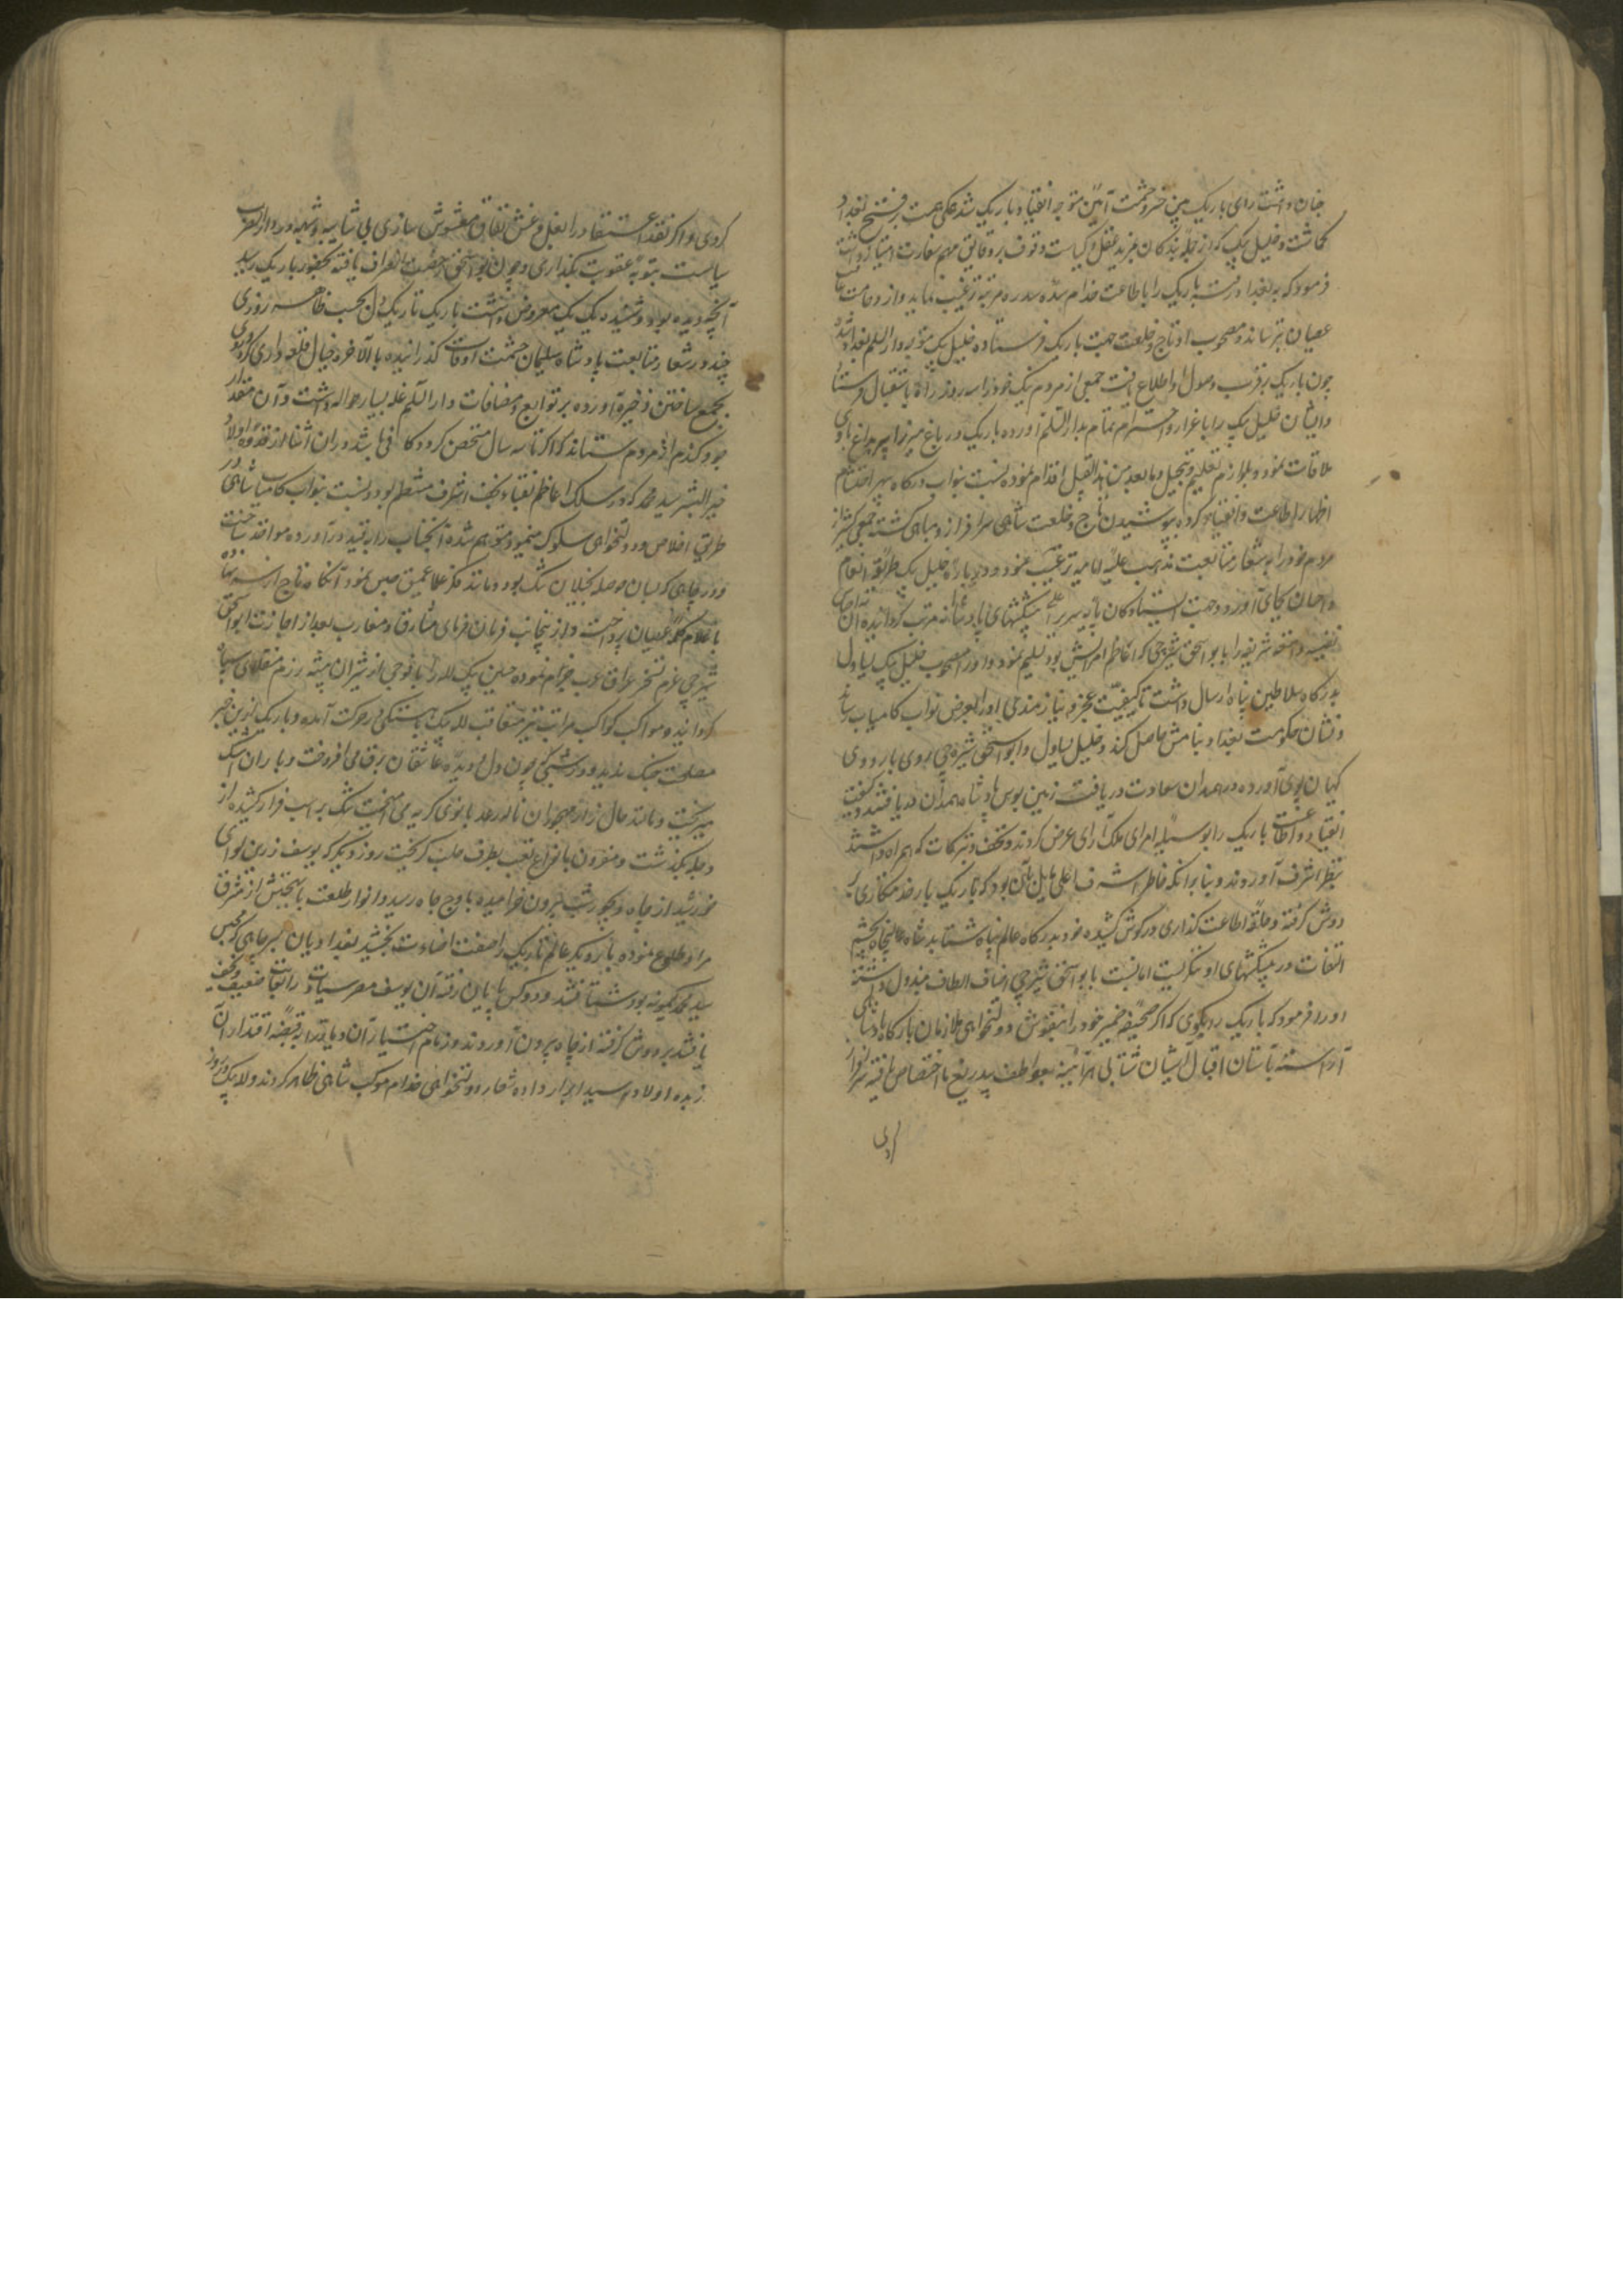 چنان داشت رای باریک بین خسرو حشمت آیین متوجه انقیاد باریک شد همگی همت بر فتح بغداد
گماشت و خلیل بیک که از جمله بندگان بمزید عقل و کیاست و وقوف بر دقایق مهم سفارت امتیاز داشت
فرمود که به بغداد رفته باریک را باطاعت خدام سده سدره مرتبه ترغیب نماید و از وخامت عاقبت
عصیان بترساند و مصحوب او تاج و خلعت جهت باریک فرستاده خلیل بیک متوجه دار السلم بغداد شد
چون باریک بر قرب وصول او اطلاع یافت جمعی از مردم نیک خود را سه روزه راه باستقبال فرستاد
و ایشان خلیل بیک را باعزاز و احترام تمام بدار السلم آورده باریک در باغ میرزا پیر بداغ با وی
ملاقات نمود و بلوازم تعظیم و تبجیل و ما بعد من هذا القبیل اقدام نموده نسبت بنواب درگاه سپهر احتشام
اظهار اطاعت و انقیاد کرده بپوشیدن تاج و خلعت شاهی سرافراز و مباهی گشته جمعی کثیر از
مردم خود را به شعار متابعت مذهب علیه امامیه ترغیب نمود و درباره خلیل بیک طریقه انعام
و احسان بجای آورد و جهت ایستادگان پایه سریر اعلی پیشکشهای پادشاهانه مرتب گردانیده آن
نفیسه و تحفه شریفه را بابو اسحق شیره چی که اعاظم امرایش بود تسلیم نمود و او را مصحوب خلیل بیک یساول
بدرگاه سلاطین پناه ارسال داشت تا کیفیت عجز و نیازمندی او را بعرض نواب کامیاب رساند
و نشان حکومت بغداد بنامش حاصل کند و خلیل یساول و ابو اسحق شیره چی روی باردوی
کیهان پوی آورده در همدان سعادت دریافت زمین بوس پادشاه همدان دریافتند و کیفیت
انقیاد و اطاعت باریک را بوسیله امرای ملک آرای عرض کردند و تحف و تبرکات که همراه داشتند
بنظر اشرف آوردند و بنا برانکه خاطر اشرف اعلی مایل بآن بود که باریک بار خدمتکاری بر
دوش گرفته و حلقه اطاعت گذاری در گوش کشیده خود بدرگاه عالم پناه شتابد شاه عالیجاه بچشم
التفات در پیشکشهای او ننگریست اما نسبت بابو اسحق شیره چی اصناف الطاف مبذول داشته
او را فرمود که باریک را بگوی که اگر صحیفه ضمیر خود را بنقوش دولتخواهی ملازمان بارگاه پادشاهی
آراسته بآستان اقبال آشیان شتابی هر آینه بعواطف بیدریغ ما اختصاص یافته سرافراز
کردی
کردی و اگر نقد اعتقاد را بغل و غش نفاق مغشوش سازی بی شایبه و شبهه در دار الضرب
سیاست بتوبه عقوبت بگذاری و چون ابو اسحق رخصت انصراف یافته بحضور باریک رسید
آنچه دیده بود و شنیده یک یک معروض داشت باریک تاریک دل بحسب ظاهر سه روزی
چند در شعار متابعت پادشاه سلیمان حشمت اوقات گذرانیده بالآخره خیال قلعه داری کرده روی
بجمع ساختن ذخیره آورده بر توابع و مضافات دار السلم غله بسیار حواله داشت و آن مقدار
جو و گندم از مردم ستاند که اگر تا سه سال متحصن گردد کافی باشد در ان اثنا از قدوه اولاد
خیر البشر سید محمد که در سلک اعاظم نقباء نجف اشرف منتظم بود و نسبت بنواب کامیاب شاهی در
طریق اخلاص و دولتخواهی سلوک مینمود متوهم شده آنجناب را بقید درآورده مواخذ ساخت
و در چاهی که بسان حوصله بخیلان تنگ بود و مانند فکر عقلا عمیق حبس نمود آنگاه تاج از سر نهاده
باعلام کلمه عصیان پرداخت و از نیجانب فرمان فرمای مشارق و مغارب بعد از اجازت ابو اسحق
شیره چی عزم تسخیر عراق عرب جزم نموده حسین بیک لله را با فوجی از شیران بیشه رزم منقلای سپاه
گردانیده مواکب کواکب مراتب نیز متعاقب لله بیک باهستگی در حرکت آمده و باریک ازین خبر
مصلحت جنگ ندید و در شبی که چون دل و دیده عاشقان برق می افروخت و باران اشک
میریخت و مانند حال زار مهجوران ناله رعد بانوای گریه می آمیخت تنگ بر اسب فرار کشیده از
دجله بگذشت و مقرون بانواع تعب بطرف حلب گریخت روز دیگر که یوسف زرین لوای
خورشید از چاه دیجور شب بیرون خرامیده باوج جاه رسید و انوار طلعت با بهجتش از مشرق
مراد طلوع نموده بار دیگر عالم تاریک را صفت اضاءت بخشید بغدادیان بسر چاهی که محبس
سید محمد کمونه بود شتافتند و دو کس بپایان رفته آن یوسف مصر سیادت را بغایت ضعیف و نحیف
یافتند بر دوش گرفته از چاه بیرون آوردند و زمام اختیار آن دیار را بقبضه اقتدار آن
زبده اولاد سید ابرار داده شعار دولتخواهی خدام موکب شاهی ظاهر کردند و لله بیک روز